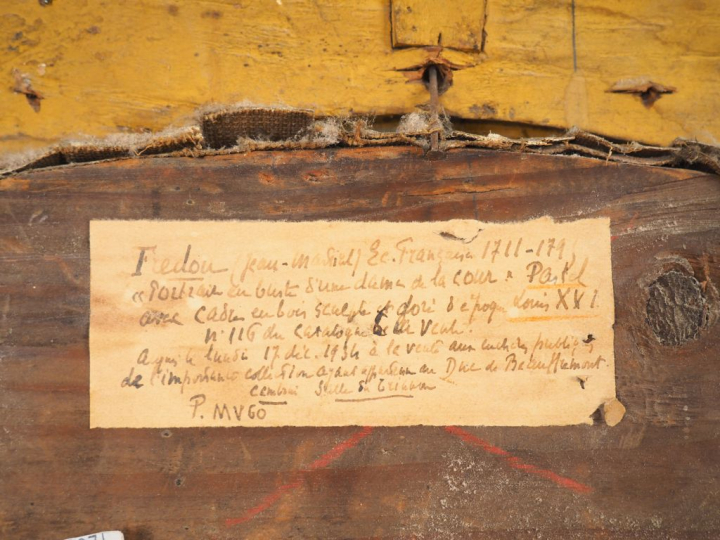 Fredou (Jean-Martial) Ec. Française 1711-179
"Portrait en buste d'une dame de la cour" Pastel
avec cadre en bois sculpté et doré d'époque Louis XVI
n° 116 du catalogue de vente.
Acquis le lundi 17 déc. 1934 à la vente aux enchères publiques
de l'importante collection ayant appartenu au Duc de Beauffremont.
Salle du
P. MVGO